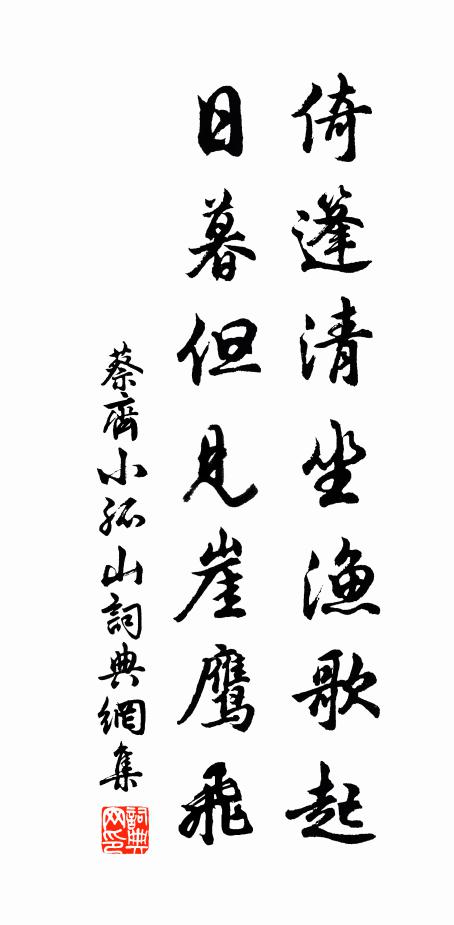 倚篷清坐漁歌起
日暮但見崖鷹飛
蔡齊小孤山詞典網集
詞典网印